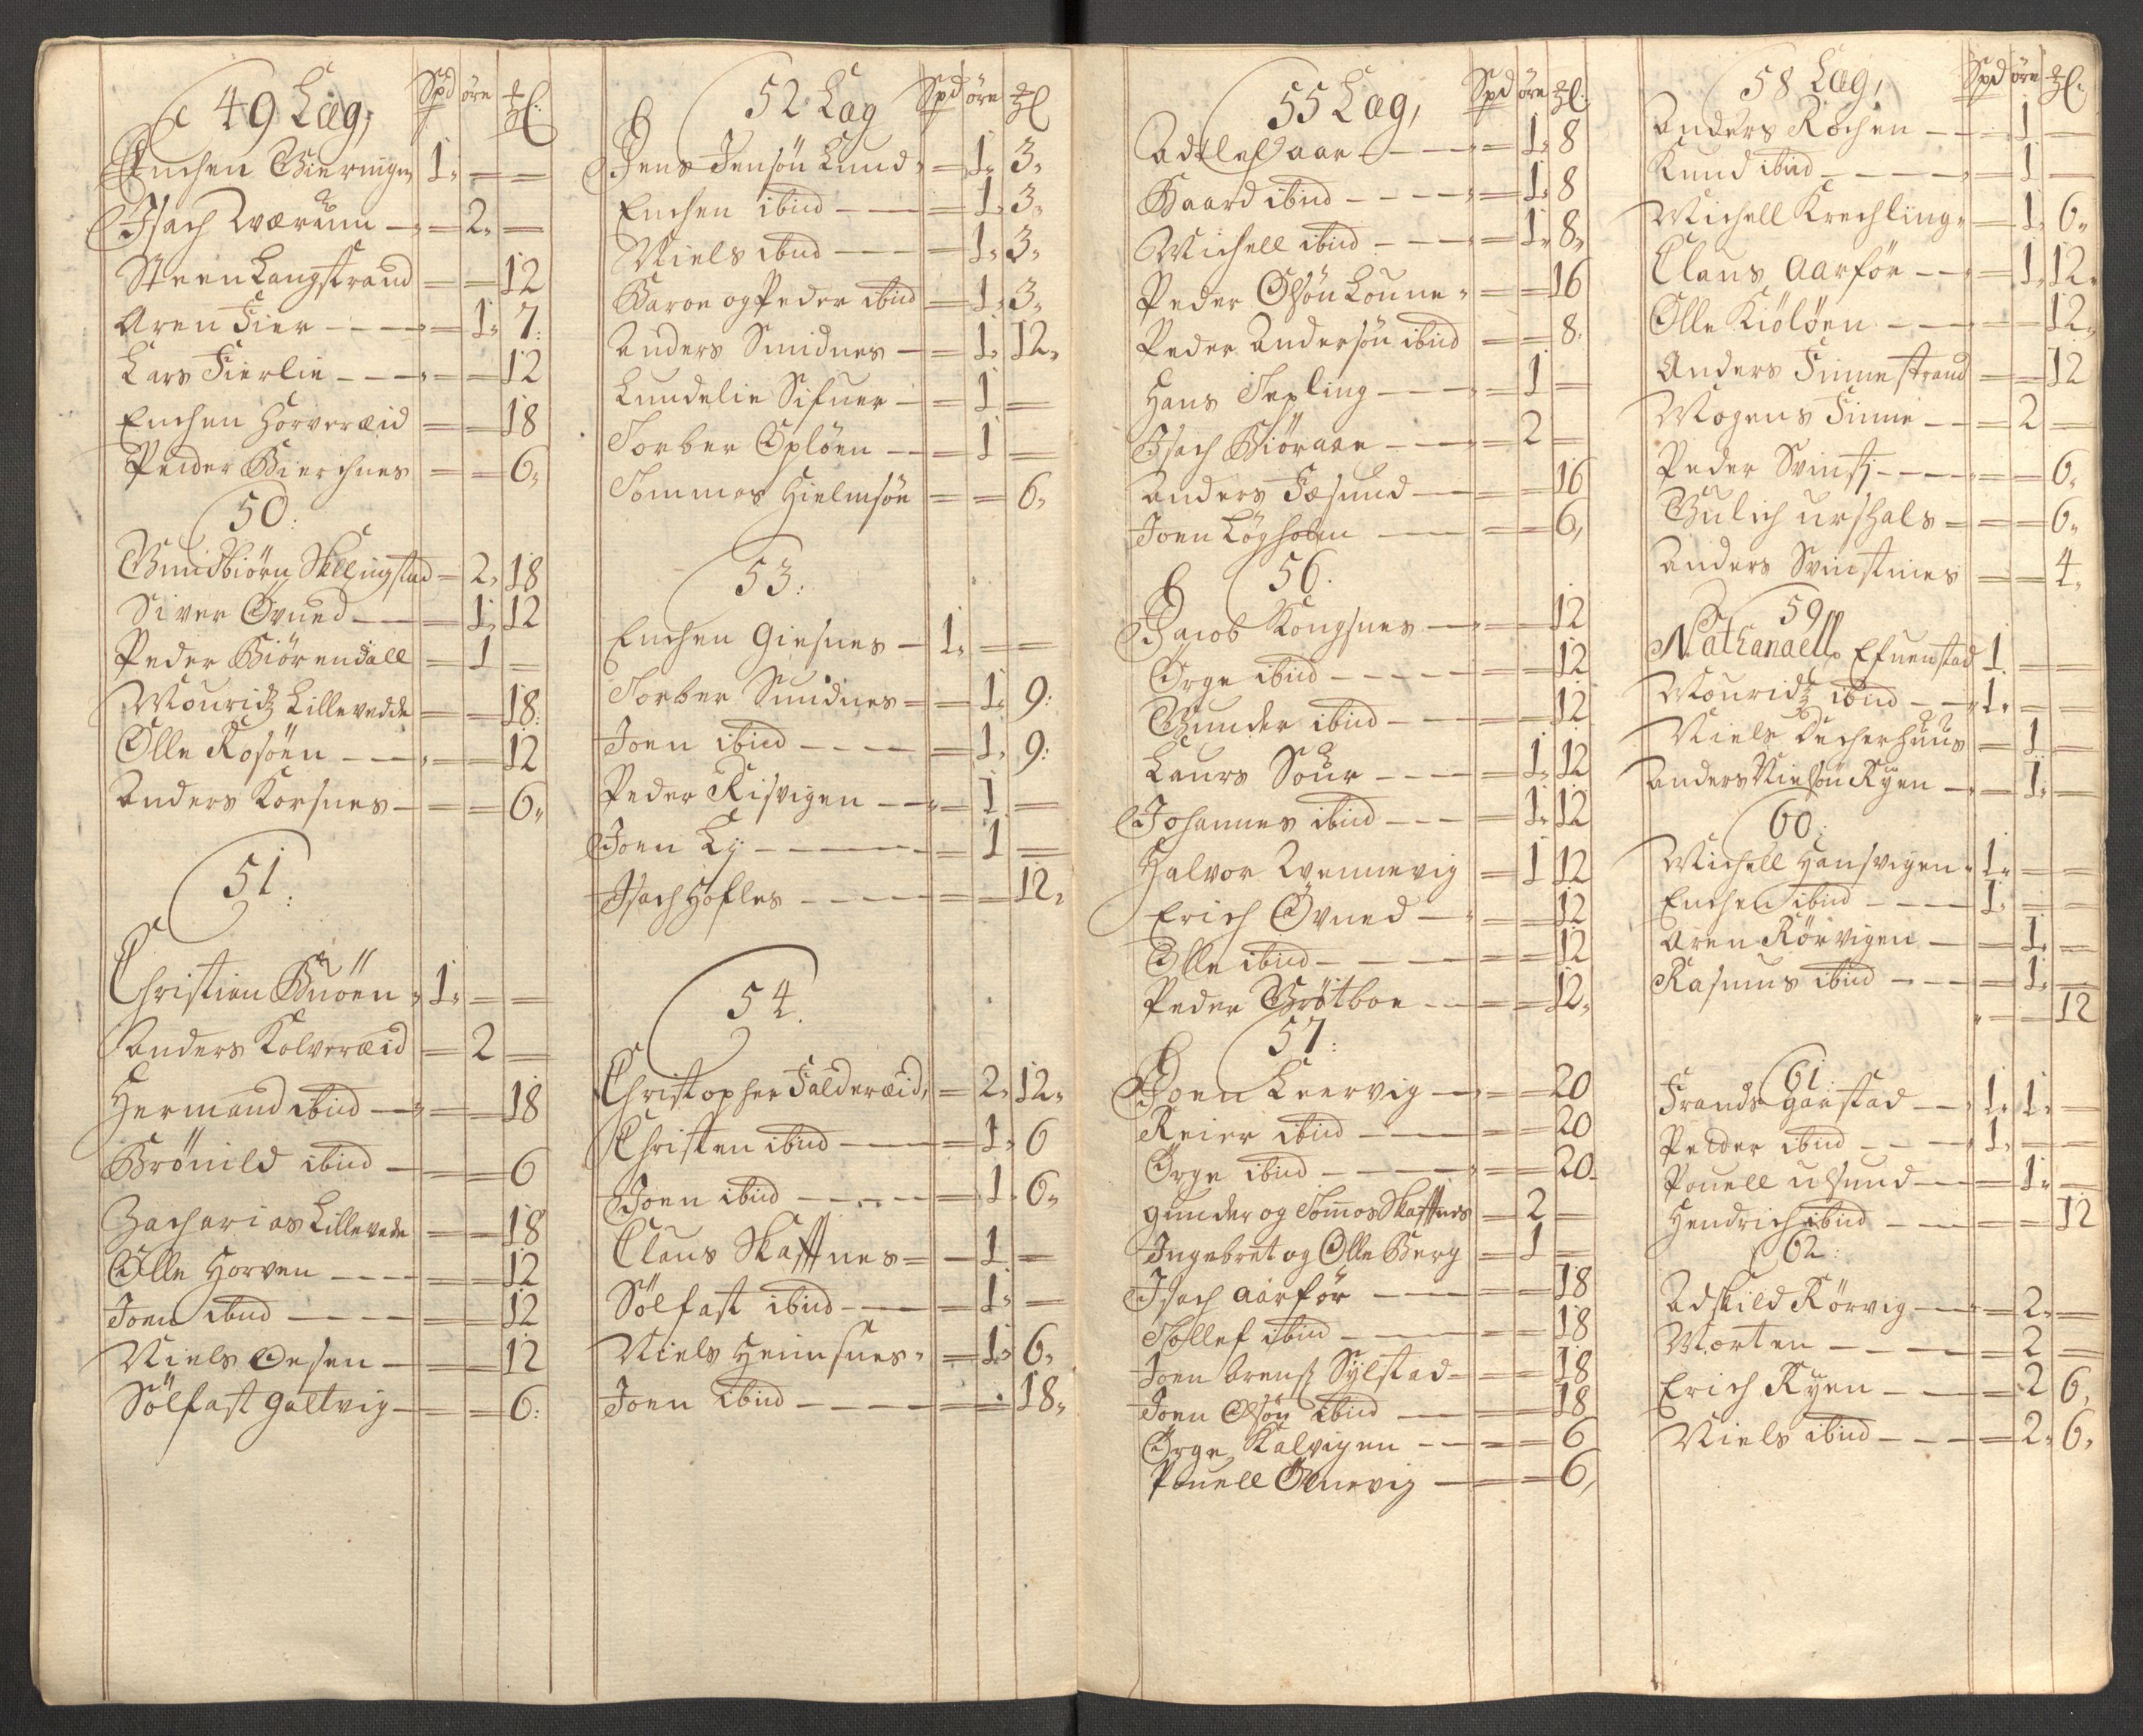 49 Læg, Spd öre ℔:
Enchen Gieringen 1. = =
Isach Wærum - = 2. =
Steen Langstrand = = 12
Aren Fier - - - = 1. 7:
Lars Fierlie - - - = = 12
Enchen Horveræid = = 18
Peder Bierchnes = = 6.
50:
Gundbiörn Skillingstad = 2. 18
Siver Ovned - - = 1. 12
Peder Biörendall = 1 =
Mouridz Lillevedde = = 18:
Olle Rosöen - - - = = 12
Anders Korsnes - = = 6.
51:
Christien Buöen 1. = =
Anders Kolveræid = 2 =
Hermand ibid - = = 18
Brönild ibid - = = 6
Zacharias Lillevede = = 18
Olle Horven - - - = = 12
Joen ibid - - - = = 12
Niels Oesen - = = 12
Sölfast Galtvig - = = 6:
52 Læg Spd öre ℔
Jens Jensön Lund = 1. 3.
Enchen ibid - - = 1. 3.
Niels ibid - - = 1. 3.
Baroe og Peder ibid = 1. 3.
Anders Smidnes - = 1. 12.
Lundelie Sifuer - = 1 =
Torber Oplöen - - = 1 =
Tommos Hielmsöe = = 6.
53:
Enchen Giesnes - 1. = =
Torber Sundnes = = 1. 9:
Joen ibid - - - = 1. 9:
Peder Risvigen - - = 1 =
Joen Ly - - - - = 1 =
Isach Hofles - - - = = 12.
54.
Christopher Falderæid, = 2. 12.
Christen ibid - - = 1. 6
Joen ibid - - - = 1. 6.
Claus Skaffnes = - 1 =
Sölfast ibid - - = 1. =
Niels Heimsnes = 1. 6.
Joen ibid - - - - = = 18.
55 Læg, Spd öre ℔:
Adtlef Saar - - - = 1. 8
Baard ibid - - - = 1. 8
Michell ibid - - - = 1. 8.
Peder Olsön Loune = = 16
Peder Andersön ibid = = 8.
Hans Tepling - - - = 1 =
Isach Biöraae - - - = 2 =
Anders Fæsund - = = 16
Joen Lögholm - = = 6,
56.
Jacob Kongsnes - = = 12
Örge ibid - - - = = 12
Gunder ibid - - = = 12
Laurs Sour - - - = 1. 12
Johannes ibid - - - = 1. 12
Halvor Wennevig = 1 12
Erich Ovned - = = 12
Olle ibid - - - = = 12
Peder Grötboe - - = = 12.
57:
Joen Leervig - = = 20
Reier ibid - - = = 20
Örge ibid - - - = = 20.
Gunder og Tomos Skaffnes = 2 =
Ingebret og Olle Berg = 1 =
Isach Aarför - - = = 18
Tollef ibid - - = = 18
Joen Arens Sylstad = = = 18
Joen Olsön ibid - = = 18
Örge Kalvigen - - = = 6
Pouell Ölnevig - = = 6,
58 Læg, Spd öre ℔:
Anders Rochen - - = 1 =
Knud ibid - - - = 1 =
Michell Krechling = 1. 6.
Claus Aarför - - = 1. 12.
Olle Kiölöen - - = = 12.
Anders Finnestrand = = 12
Mogens Finne - - = 2 =
Peder Svinstz - - = = 6.
Gulich Urshals = = = 6.
Anders Svinstnes = = 4.
59
Nathanaell Efuenstad 1. = =
Mouridz ibid - - 1. = =
Niels Decherhuus = 1 =
Anders Nielsön Ryen - = 1. =
60:
Michell Hansvigen 1. = =
Enchen ibid - - - 1. = =
Aren Rörvigen - = 1. =
Rasmus ibid - - = 1. =
= = 12
61:
Frands Garstad - - 1. 1. =
Peder ibid - - - 1. = =
Pouell Ulsund - = 1. =
Hendrich ibid - - = = 12
62:
Adskild Rörvig - = 2. =
Morten - - - = 2 =
Erich Ryen - - = 2 6,
Niels ibid - - - = 2. 6.